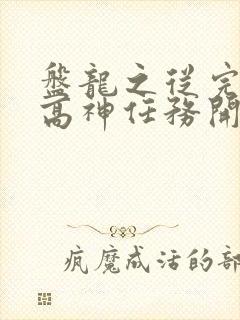 盤龍之從完
高神任務開
瘋魔成活的部